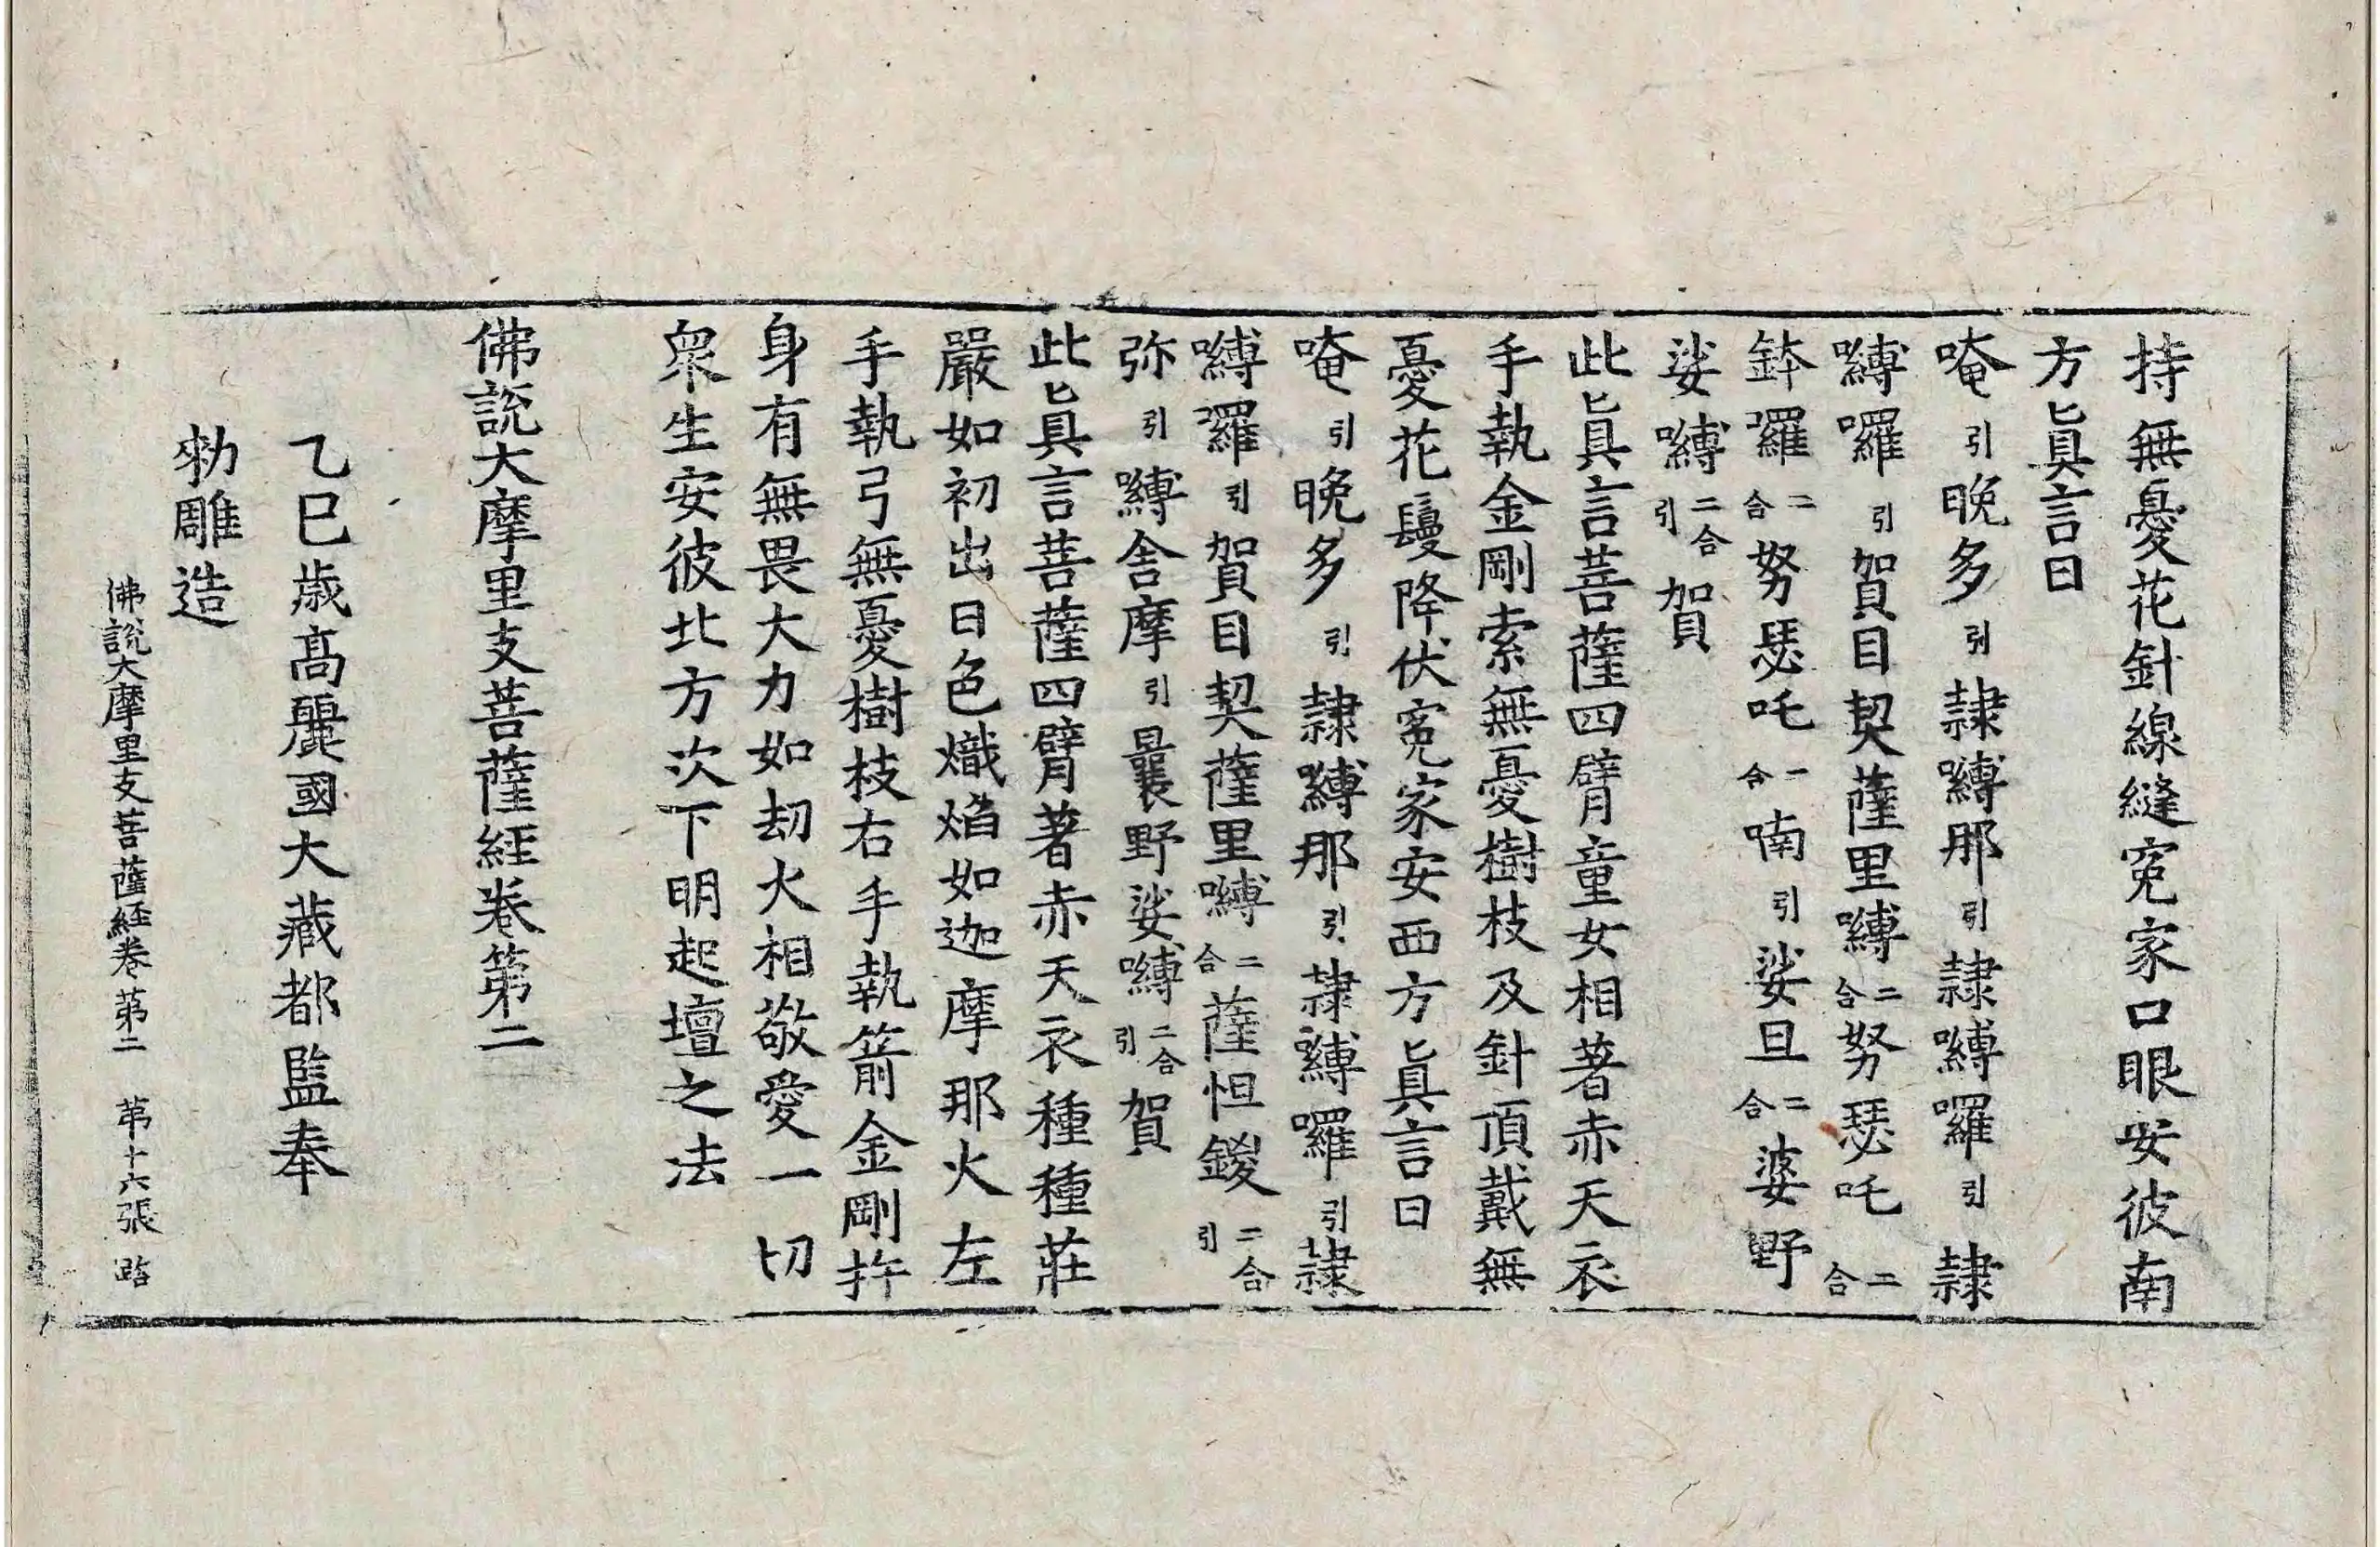 持無憂花針線縫寃家口眼安彼南
方眞言曰
唵引晚多引隷嚩那引隷嚩囉引隷
嚩囉引賀目契薩里嚩二合努瑟吒二合
鉢囉二合努瑟吒一合喃引娑旦二合婆野
娑嚩二合引賀
此眞言菩薩四臂童女相著赤天衣
手執金剛索無憂樹枝及針頂戴無
憂花鬘降伏寃家安西方眞言曰
唵引晚多引隷嚩那引隷嚩囉引隷
嚩囉引賀目契薩里嚩二合薩怛鍐二合引
弥引嚩舍摩引曩野娑嚩二合引賀
此眞言菩薩四臂著赤天衣種種莊
嚴如初出日色熾焰如迦摩那火左
手執弓無憂樹枝右手執箭金剛杵
身有無畏大力如劫火相敬愛一切
衆生安彼北方次下明起壇之法
佛說大摩里支菩薩經卷第二
乙巳歲高麗國大藏都監奉
勅雕造
佛說大摩里支菩薩經卷第二 第十六張 路